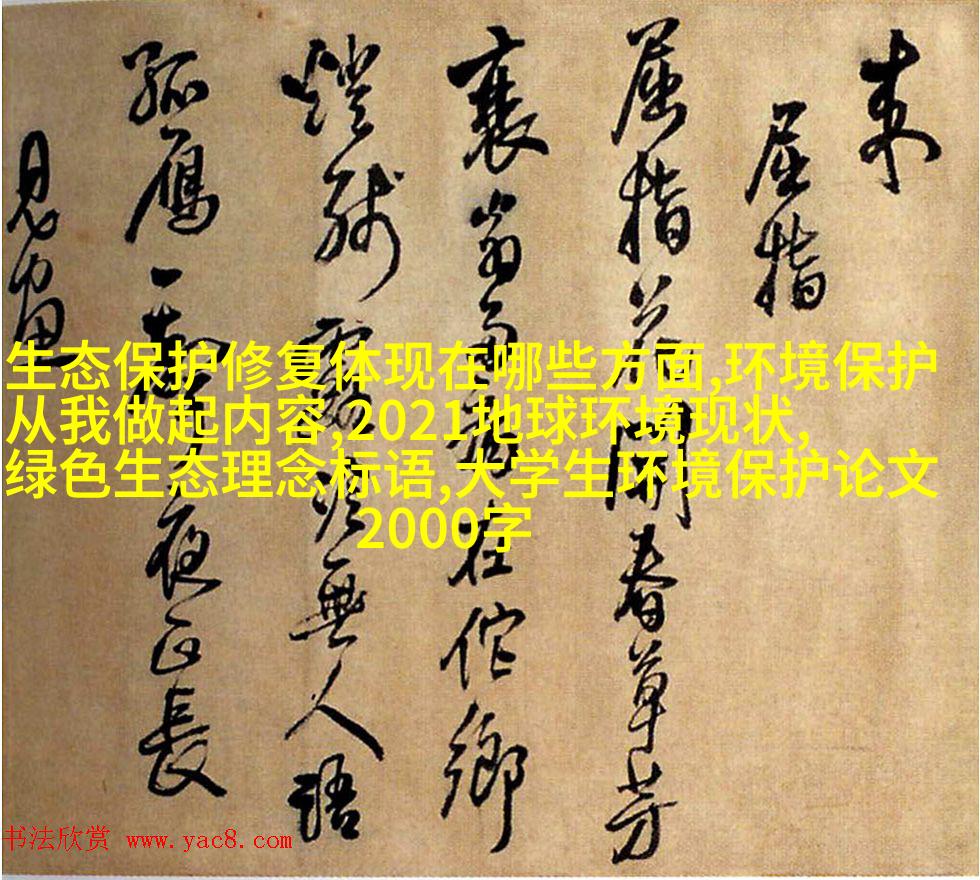 屈指
屈指花開春草芳
衰翁 在佗鄉
燈殘 無人語
孤雁一聲夜正長
生态保护修复体现在哪些方面,环境保护
从我做起内容,2021地球环境现状,
绿色生态理念标语,大学生环境保护论文
2000字
书法欣赏 www.yac8.com